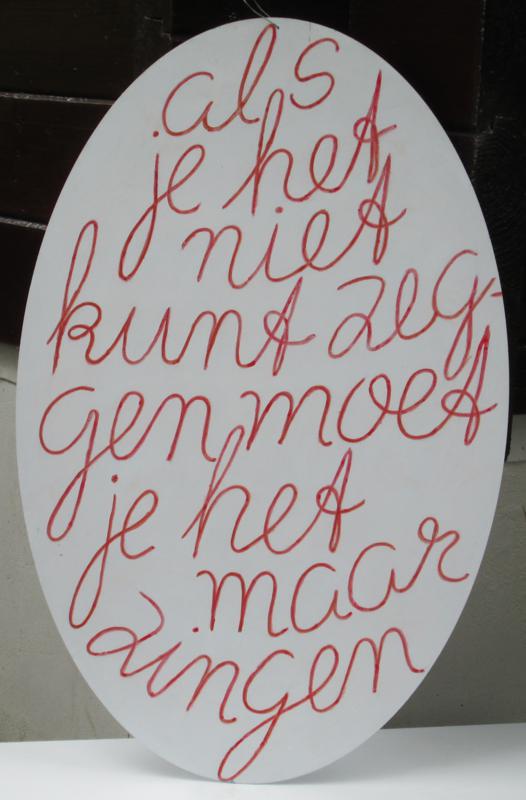 als
je het
niet
kunt zeg-
gen moet
je het
maar
zingen